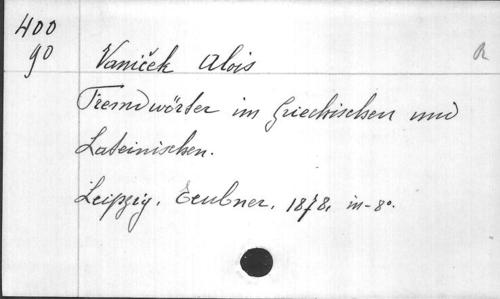 400
90
Vaniček Alois
R
Fremdwörter im Griechischen und
Lateinischen.
Leipzig. Teubner. 1878. in-8°.